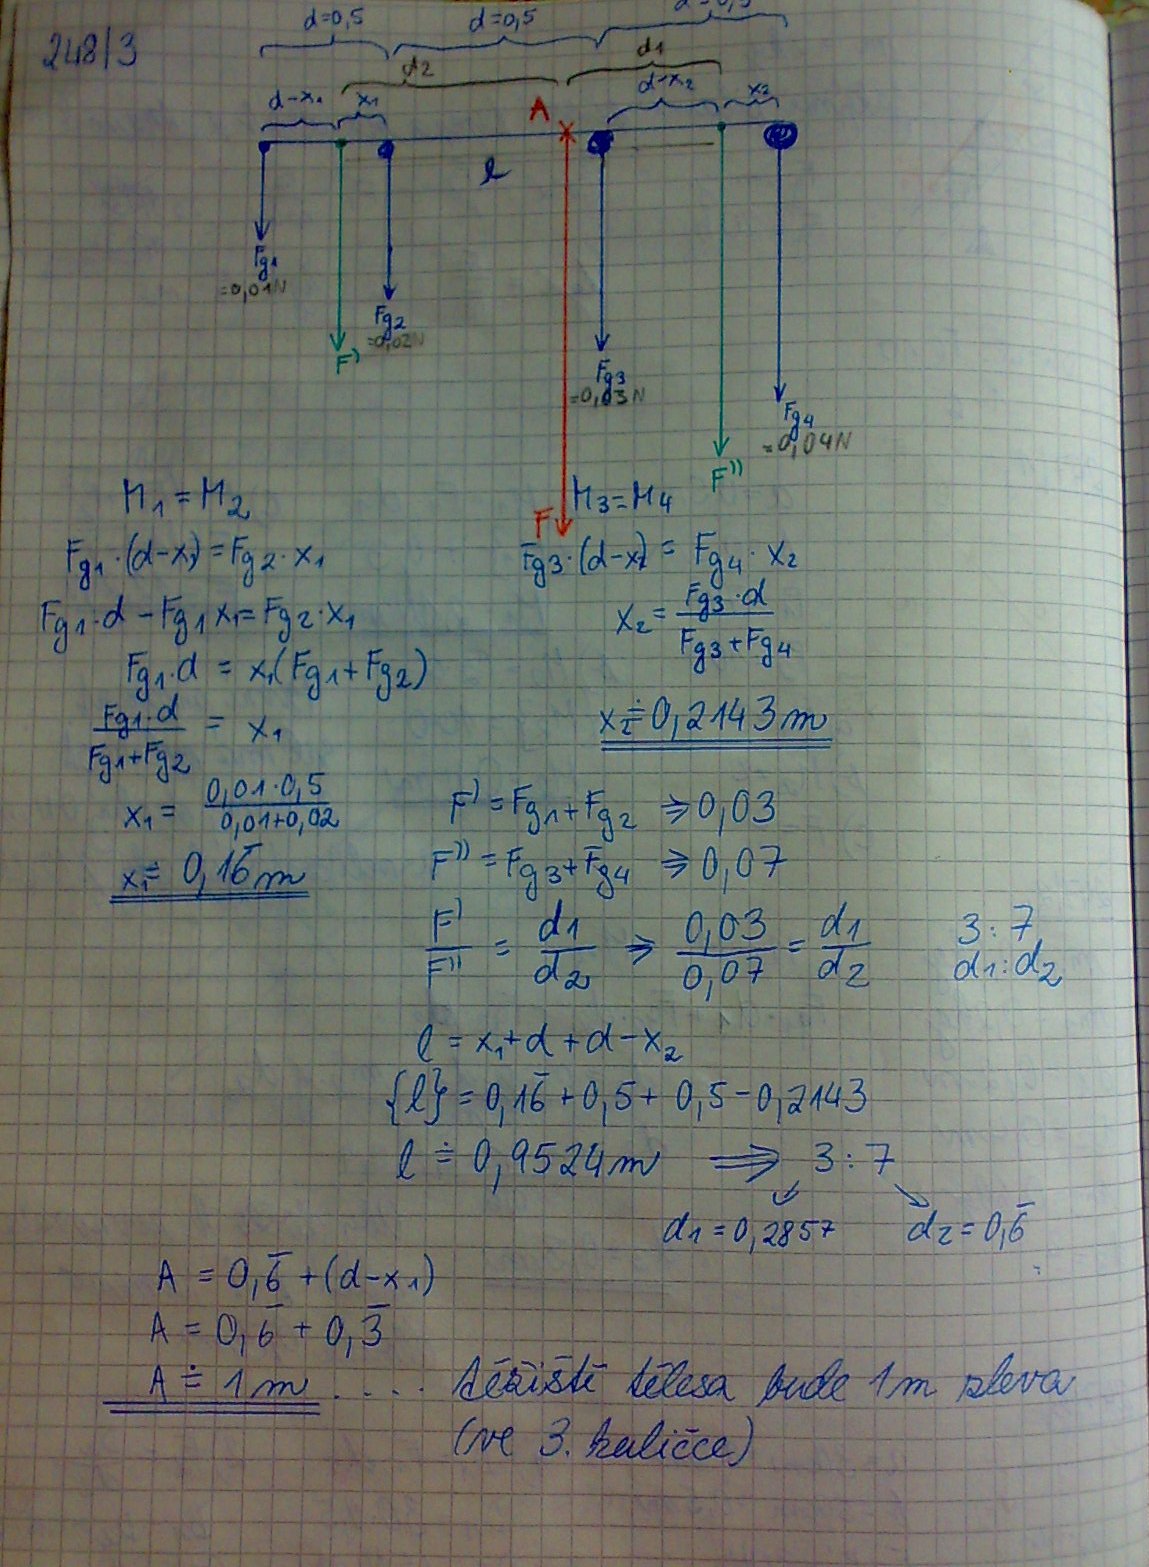 248/3
d=0,5 d=0,5
d2 d1
d-x1 x1 A d-x2 x2
l
Fg1
=0,01N
Fg2
=0,02N
F'
Fg3
=0,03N
Fg4
=0,04N
F''
F
M1 = M2
Fg1·(d-x1) = Fg2·x1
Fg1·d - Fg1 x1 = Fg2·x1
Fg1·d = x1(Fg1+Fg2)
Fg1·d / Fg1+Fg2 = x1
x1 = 0,01·0,5 / 0,01+0,02
x1 = 0,16̅ m
M3 = M4
Fg3·(d-x2) = Fg4·x2
x2 = Fg3·d / Fg3+Fg4
x2 ≐ 0,2143 m
F' = Fg1+Fg2 ⇒ 0,03
F'' = Fg3+Fg4 ⇒ 0,07
F' / F'' = d1 / d2 ⇒ 0,03 / 0,07 = d1 / d2 3:7
d1:d2
l = x1+d+d-x2
{l} = 0,16̅+0,5+0,5-0,2143
l ≐ 0,9524 m ⇒ 3:7
d1 = 0,2857 d2 = 0,6̅
A = 0,6̅ + (d-x1)
A = 0,6̅ + 0,3̅
A ≐ 1 m .... těžiště tělesa bude 1m zleva
(ve 3. kuličce)